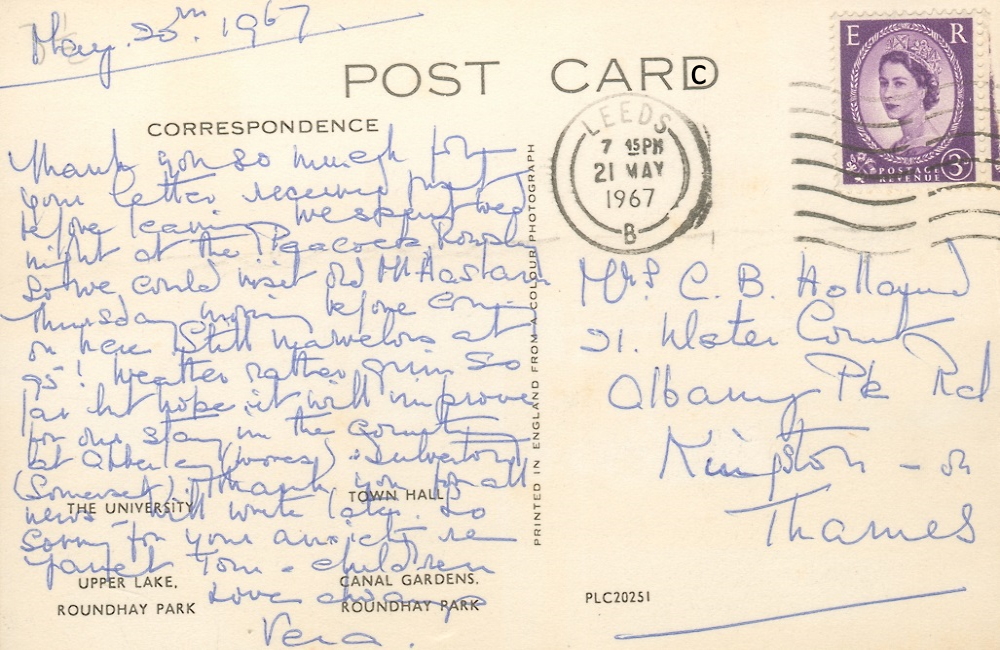 May. 20th. 1967
POST CARD
C
CORRESPONDENCE
Thank you so much for
your letter received just
before leaving We spent Wed
night at the Peacock, Rowsley
So we could visit old Mr Hasland
Thursday morning before coming
on here Still marvelous at
95! Weather rather grim So
far but hope it will improve
for our stay in the country
at Abberley (Worcs) & Dulverton
(Somerset). Thank you for all
news - will write later. So
Sorry for your anxiety re
Janet Tom & children
Love always
Vera.
THE UNIVERSITY
TOWN HALL
UPPER LAKE,
ROUNDHAY PARK
CANAL GARDENS,
ROUNDHAY PARK
PRINTED IN ENGLAND FROM A COLOUR PHOTOGRAPH
LEEDS
7 45PM
21 MAY
1967
B
E R
POSTAGE
REVENUE
3D
Mrs. C. B. Holland
21. Ulster Court
Albany Pk Rd
Kingston - on
Thames
PLC20251